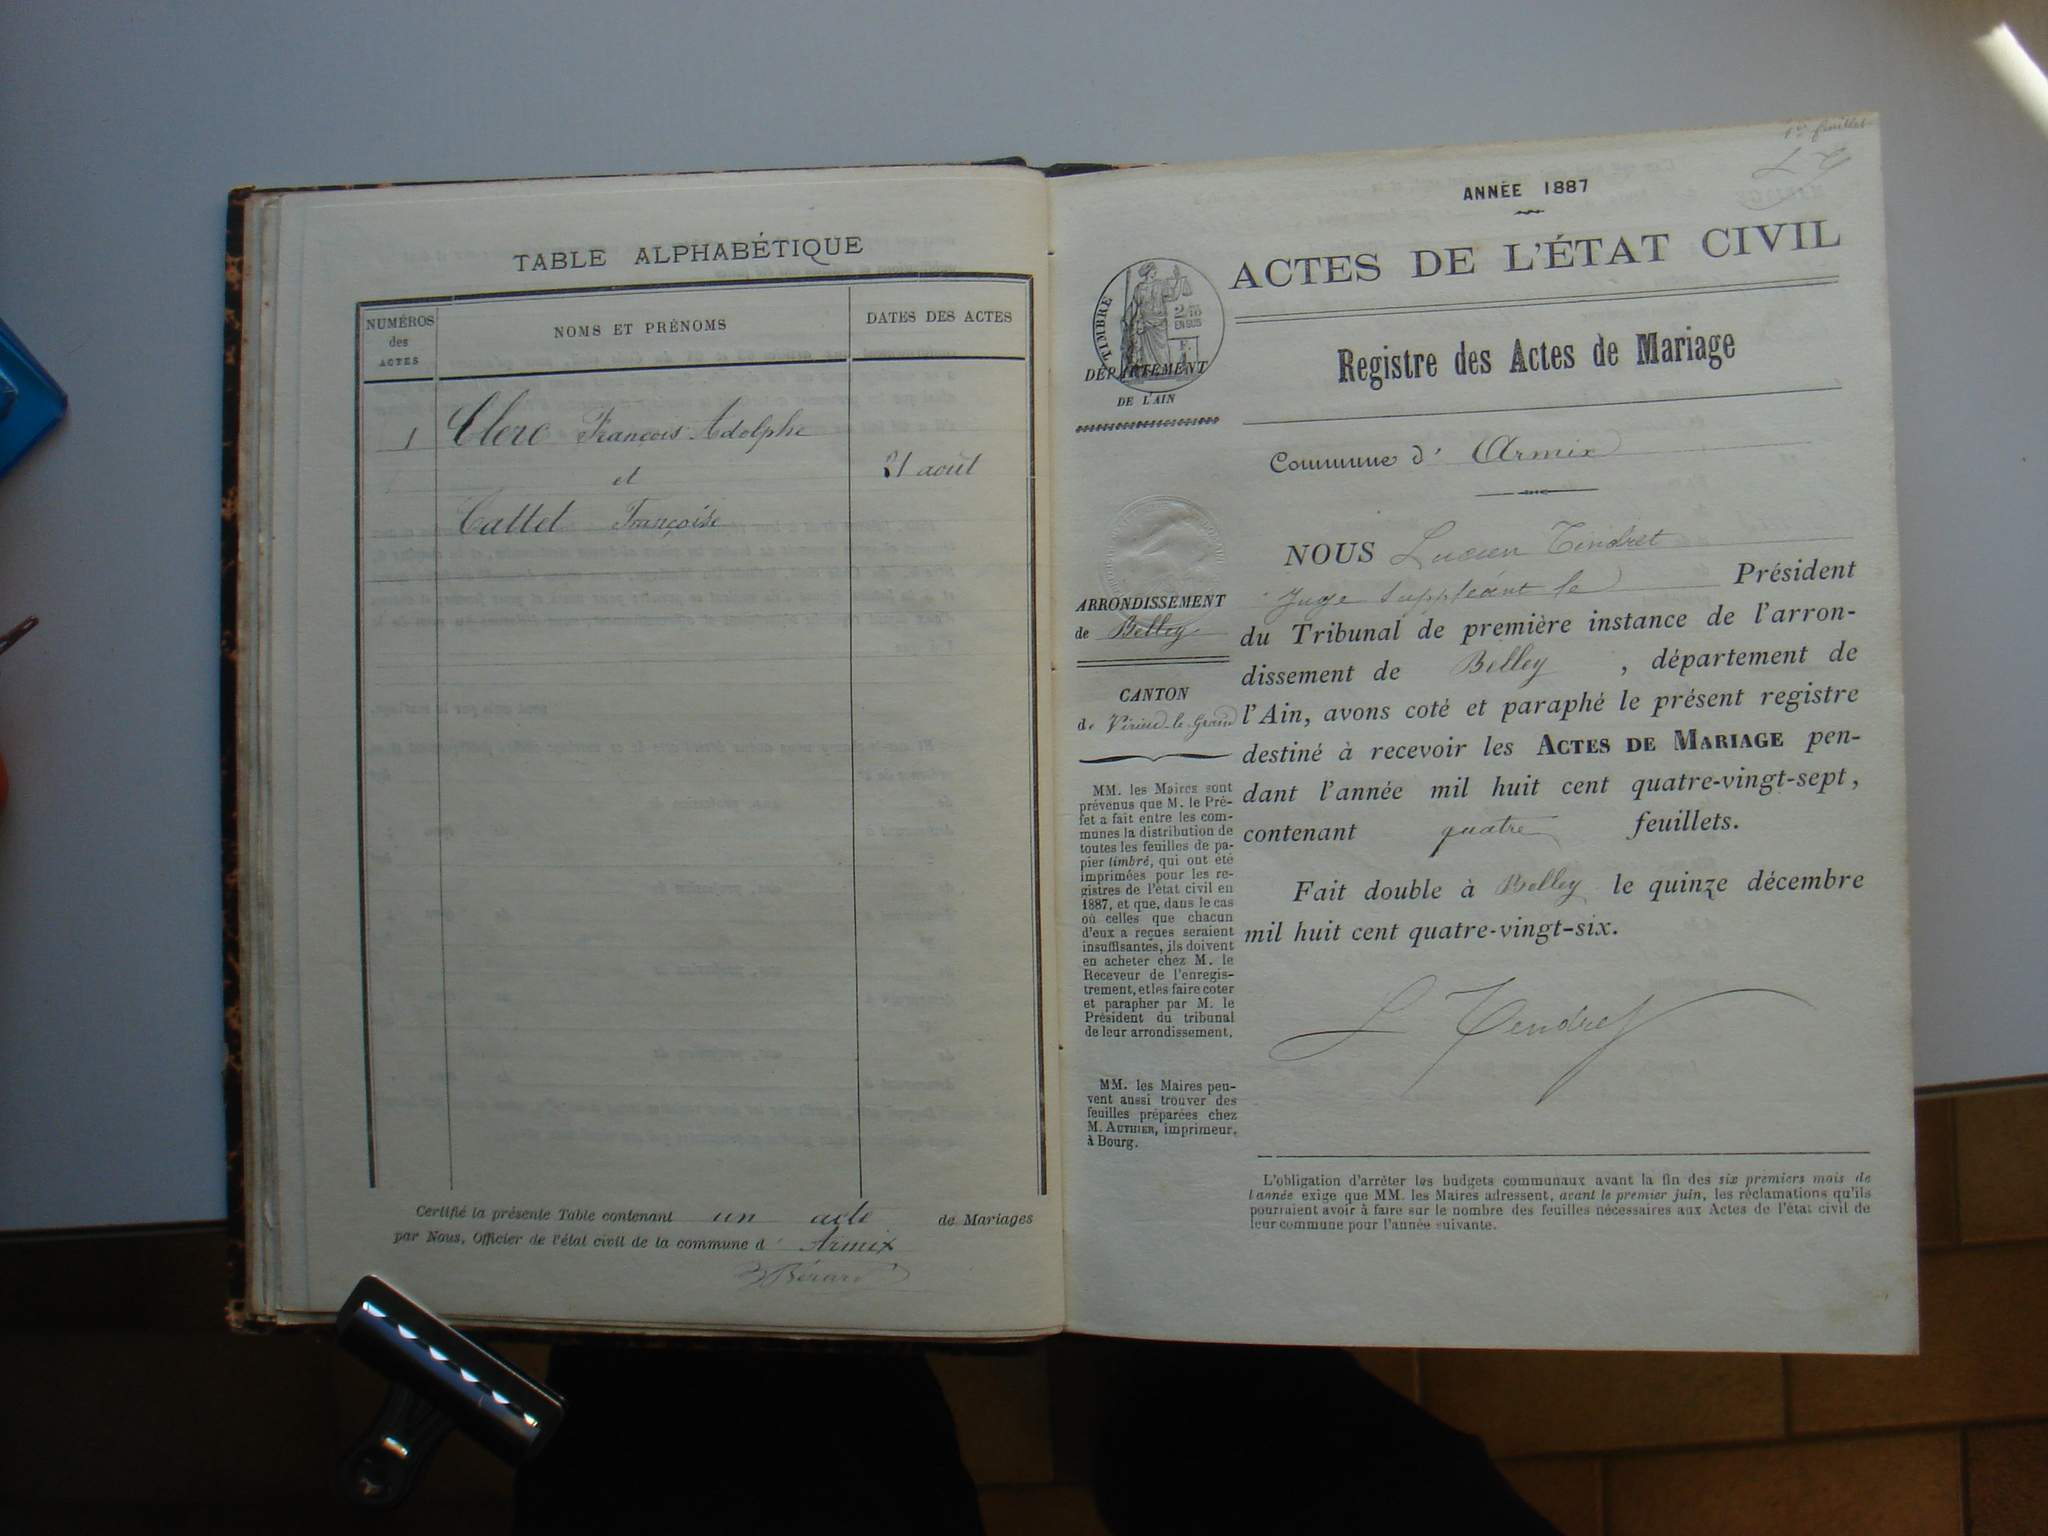 TABLE ALPHABÉTIQUE
NUMÉROS
des
ACTES
NOMS ET PRÉNOMS
DATES DES ACTES
1 Clerc François Adolphe
et
21 août
Cattet Françoise
Certifié la présente Table contenant un acte de Mariages
par Nous, Officier de l'état civil de la commune d' Armix
Bérard
1er feuillet
ANNÉE 1887
ACTES DE L'ÉTAT CIVIL
TIMBRE
EN SUS
DÉPARTEMENT
DE L'AIN
Registre des Actes de Mariage
Commune d' Armix
ARRONDISSEMENT
de Belley
CANTON
de Virieu-le-Grand
MM. les Maires sont
prévenus que M. le Pré-
fet a fait entre les com-
munes la distribution de
toutes les feuilles de pa-
pier timbré, qui ont été
imprimées pour les re-
gistres de l'état civil en
1887, et que, dans le cas
où celles que chacun
d'eux a reçues seraient
insuffisantes, ils doivent
en acheter chez M. le
Receveur de l'enregis-
trement, et les faire coter
et parapher par M. le
Président du tribunal
de leur arrondissement.
MM. les Maires peu-
vent aussi trouver des
feuilles préparées chez
M. AUTHIER, imprimeur,
à Bourg.
NOUS Lucien Tendret
Juge suppléant le Président
du Tribunal de première instance de l'arron-
dissement de Belley , département de
l'Ain, avons coté et paraphé le présent registre
destiné à recevoir les ACTES DE MARIAGE pen-
dant l'année mil huit cent quatre-vingt-sept,
contenant quatre feuillets.
Fait double à Belley le quinze décembre
mil huit cent quatre-vingt-six.
L Tendret
L'obligation d'arrêter les budgets communaux avant la fin des six premiers mois de
l'année exige que MM. les Maires adressent, avant le premier juin, les réclamations qu'ils
pourraient avoir à faire sur le nombre des feuilles nécessaires aux Actes de l'état civil de
leur commune pour l'année suivante.